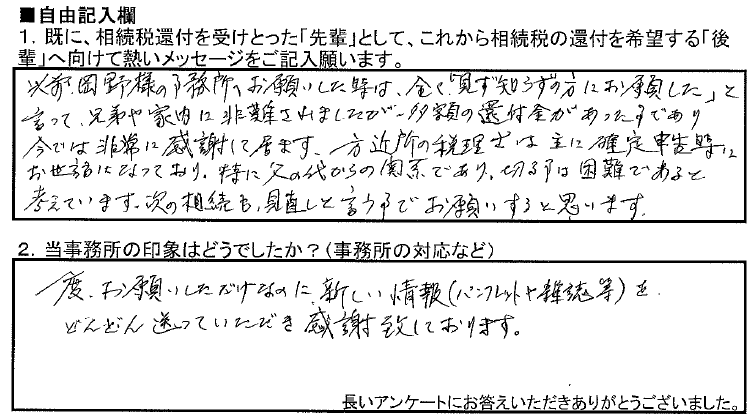 ■自由記入欄
1. 既に、相続税還付を受けとった「先輩」として、これから相続税の還付を希望する「後
輩」へ向けて熱いメッセージをご記入願います。
以前、岡野様の事務所へお願いした時は、全く「見ず知らずの方にお願した」と
言って、兄弟や家内に非難されましたが、多額の還付金があった事であり
今では非常に感謝して居ます、一方近所の税理士は主に確定申告時に
お世話になっており、特に父の代からの関係であり、切る事は困難であると
考えています。次の相続も、見直しと言う事でお願いすると思います。
2. 当事務所の印象はどうでしたか?(事務所の対応など)
一度、お願いしただけなのに、新しい情報(パンフレットや雑誌等)を
どんどん送っていただき感謝致しております。
長いアンケートにお答えいただきありがとうございました。